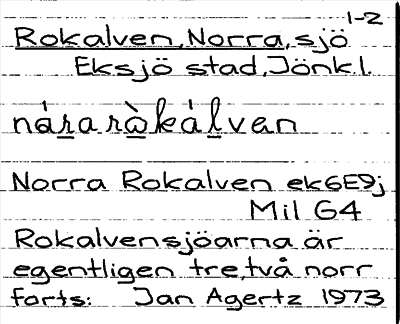 1-2
Rokalven, Norra, sjö
Eksjö stad, Jönk.l.
náraròkálven
Norra Rokalven ek6E9j
Mil G4
Rokalvensjöarna är
egentligen tre, två norr
forts: Jan Agertz 1973